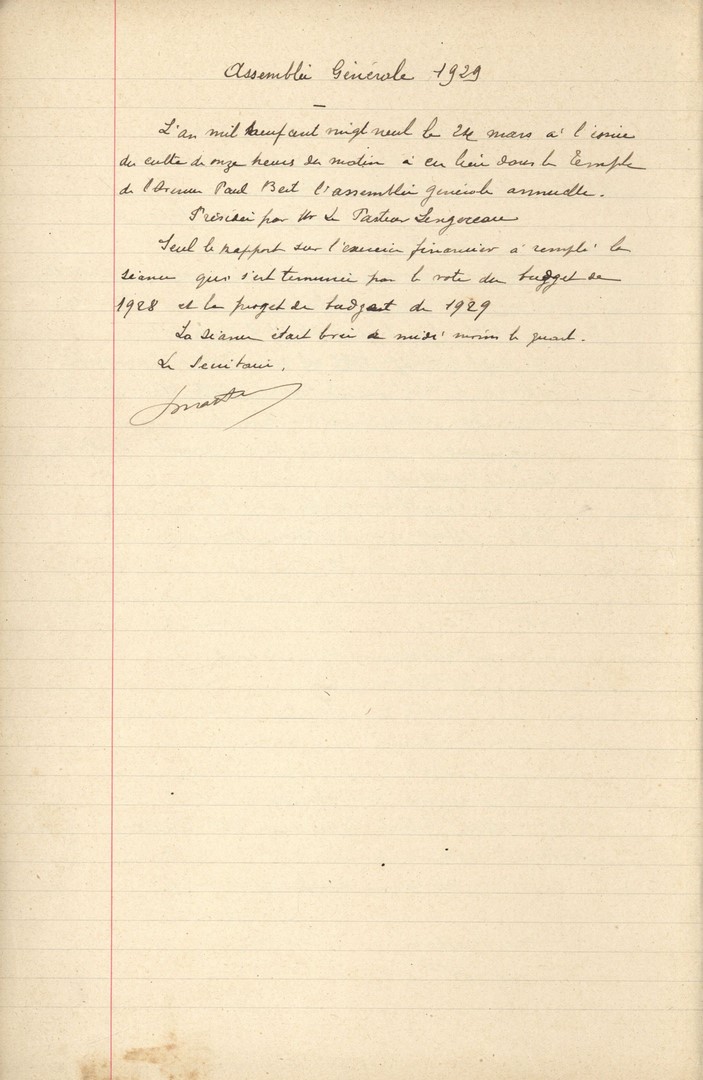 Assemblée Générale 1929
L'an mil neuf cent vingt neuf le 24 mars à l'issue
du culte de onze heures du matin à eu lieu dans le Temple
de l'Avenue Paul Bert l'assemblée générale annuelle.
Présidée par Mr Le Pasteur
Seul le rapport sur l'exercice financier à remplé la
séance qui s'est terminée par le vote du budget de
1928 et le projet de budget de 1929
La séance était levée à midi moins le quart.
Le Secrétaire,